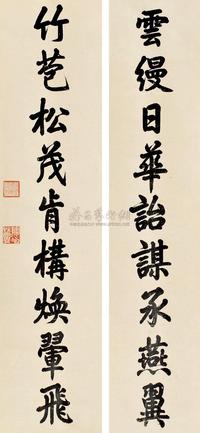 雲縵日華詒謀承燕翼
竹苞松茂肯構煥翬飛